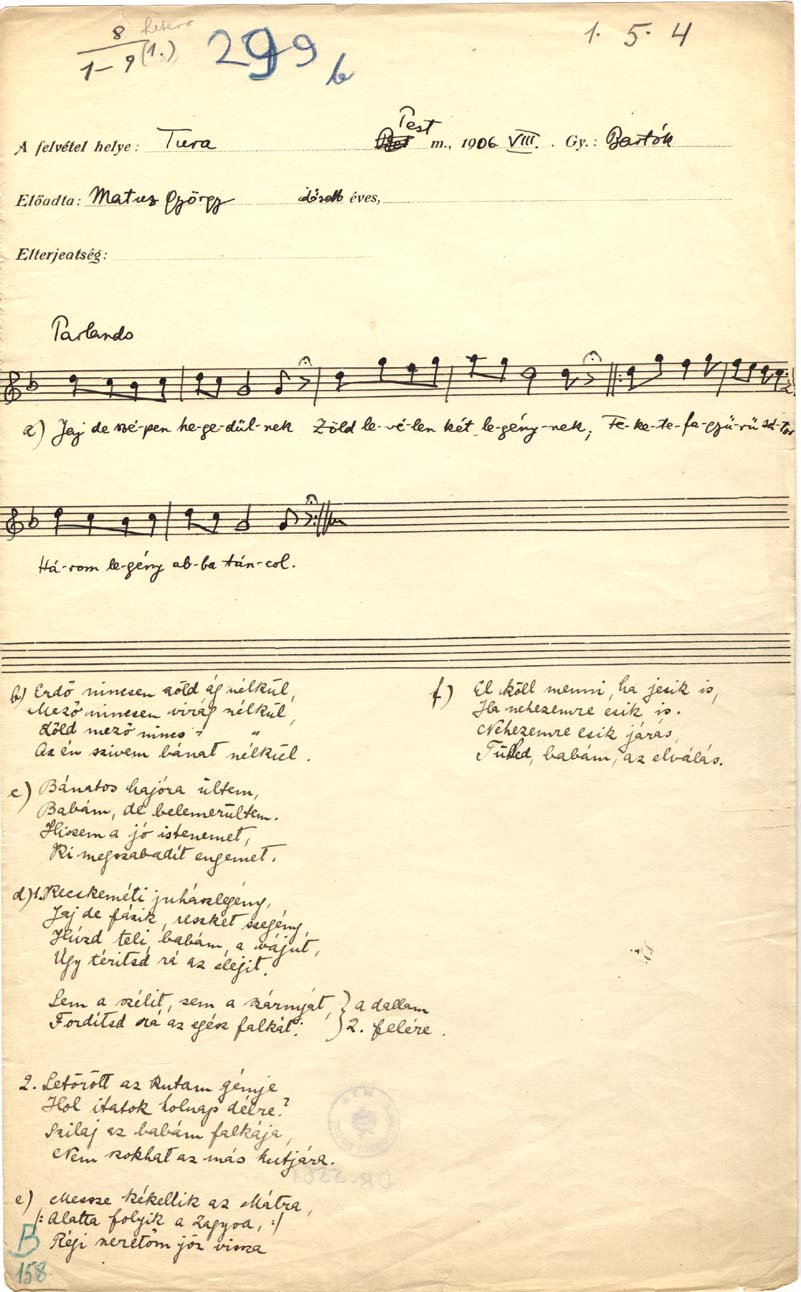 8 hetero
1–9 (1.)
299 b
1. 5. 4
A felvétel helye: Tura Pest m., 1906 VIII. Gy.: Bartók
Előadta: Matuz György idősebb éves,
Elterjeatség:
Parlando
a) Jaj de szé-pen he-ge-dül-nek Zöld le-vé-len két le-gény-nek, Fe-ke-te-fa-gyü-rü sá-tor
Há-rom le-gény ab-ba tán-col.
b) Erdő nincsen zöld ág nélkül,
Mező nincsen virág nélkül,
Zöld mező nincs " "
Az én szivem bánat nélkül.
c) Bánatos hajóra ültem,
Babám, de belemerültem.
Hiszem a jó istenemet,
Ki megszabadít engemet.
d) 1. Kecskeméti juhászlegény,
Jaj de fázik, reszket szegény,
Húzd teli, babám, a vájut,
Ugy téritsd rá az elejit.
Sem a szélit, sem a szárnyát, } a dallam
Forditsd rá az egész falkát. } 2. felére.
2. Letörött az kutam gémje
Hol itatok holnap délre?
Szilaj az babám falkája,
Nem szokhat az más kutjára.
e) Messze kékellik az Mátra,
/: Alatta folyik a Zagyva, :/
Régi szeretőm jön vissza
f) El köll menni, ha jesik is,
Ha nehezemre esik is.
Nehezemre esik járás,
Tüled, babám, az elválás.
B
158